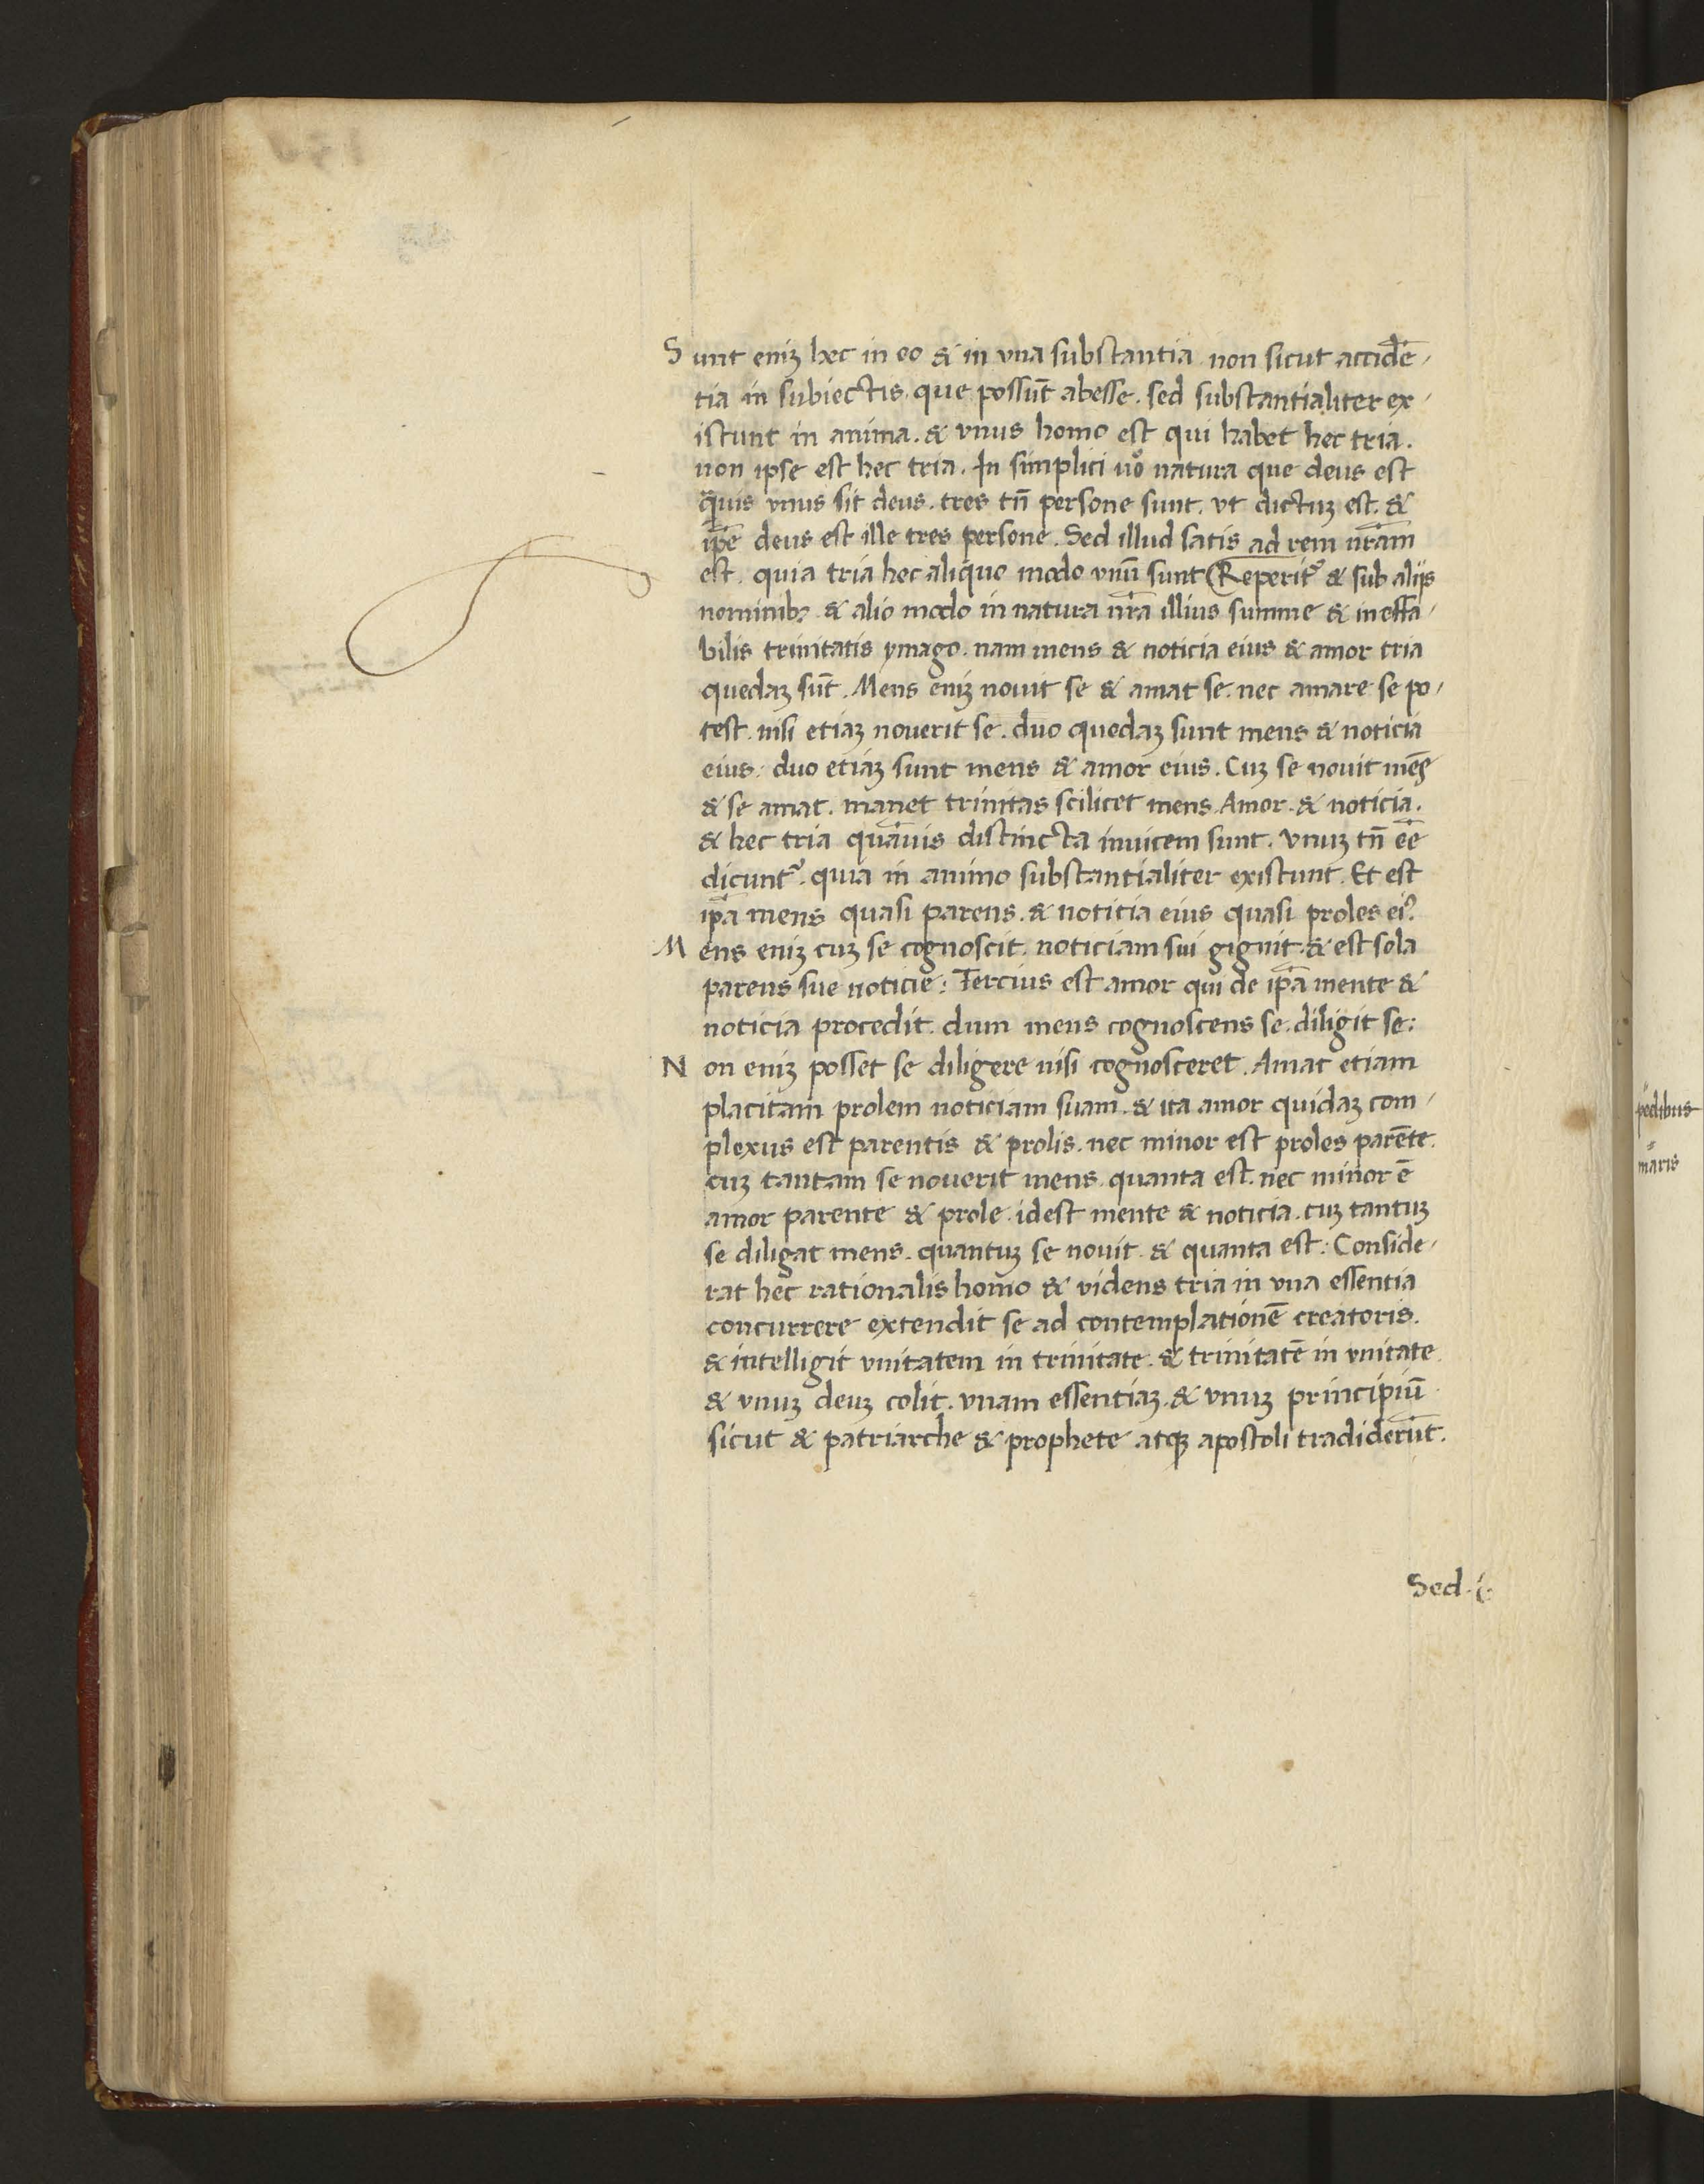 Sunt eniꝫ hec in eo & in vna substantia non sicut accidē-
tia in subiectis. que possūt abesse. sed substantialiter ex-
istunt in anima. & vnus homo est qui habet hec tria.
non ipse est hec tria. In simplici uͦo natura que deus est
q̄uis vnus sit deus. tres tn̄ persone sunt. vt dictuꝫ est. &
ip̄e deus est ille tres persone. Sed illud satis ad rem nr̄am
est. quia tria hec aliquo modo vnū sunt Reperitᷣ & sub alijs
nominibꝫ & alio modo in natura nr̄a illius summe & ineffa-
bilis trinitatis ymago. nam mens & noticia eius & amor tria
quedaꝫ sūt. Mens eniꝫ nouit se & amat se. nec amare se po-
test. nisi etiaꝫ nouerit se. duo quedaꝫ sunt mens & noticia
eius. duo etiaꝫ sunt mens & amor eius. Cuꝫ se nouit mēs
& se amat. manet trinitas scilicet mens. Amor. & noticia.
& hec tria quāuis distincta inuicem sunt. Vnuꝫ tn̄ eē
dicuntᷣ. quia in animo substantialiter existunt. Et est
ip̄a mens quasi parens. & noticia eius quasi proles eiꝰ.
Mens eniꝫ cuꝫ se cognoscit. noticiam sui gignit. & est sola
parens sue noticie: Tercius est amor qui de ip̄a mente &
noticia procedit. dum mens cognoscens se. diligit se:
Non eniꝫ posset se diligere nisi cognosceret. Amat etiam
placitam prolem noticiam suam. & ita amor quidaꝫ com-
plexus est parentis & prolis. nec minor est proles parēte.
cuꝫ tantam se nouerit mens. quanta est. nec minor ē
amor parente & prole. idest mente & noticia. cuꝫ tantuꝫ
se diligat mens. quantuꝫ se nouit. & quanta est: Conside-
rat hec rationalis homo & videns tria in vna essentia
concurrere extendit se ad contemplationē creatoris.
& intelligit vnitatem in trinitate. & trinitatē in vnitate.
& vnuꝫ deuꝫ colit. vnam essentiaꝫ. & vnuꝫ principiū.
sicut & patriarche & prophete atqꝫ apostoli tradiderūt.
Sed
pedibus
maris